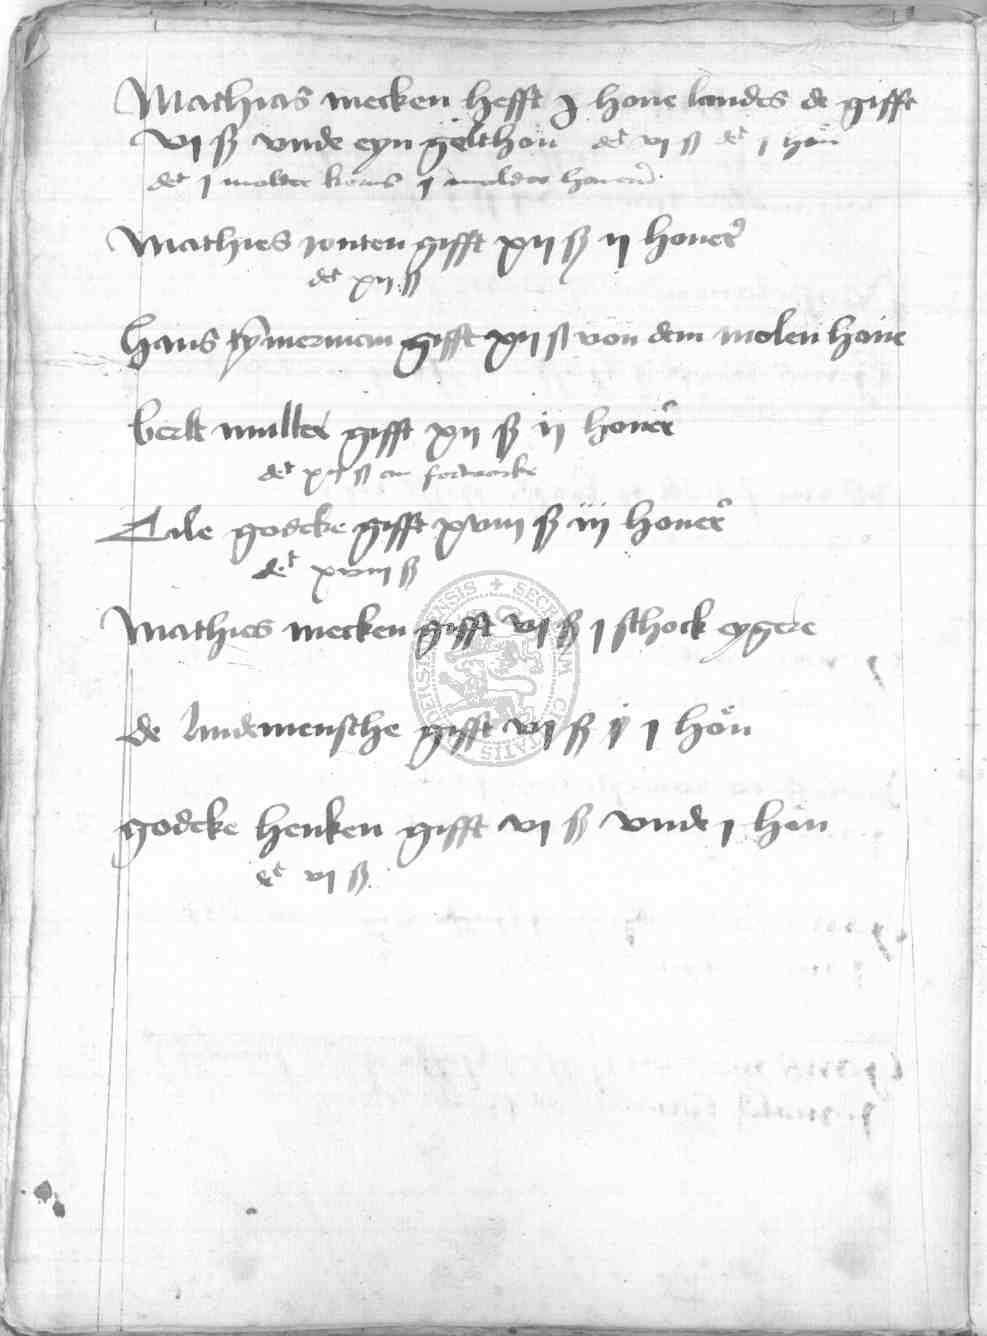 Mathias mecken hefft j houe landes de gifft
vj ß vnde eyn gelthoͤn det vj ß det j hoͤn
det j molter korns j molder hauern
Mathies ronten gifft xij ß ij honer
det xij ß
hans tȳmerman gifft xij ß von dem molen houe
berlt muller gifft xij ß ij honer
det xij ß an
Tile godeke gifft xviij ß iij honer
det xviij ß
Mathies mecken gifft vj ß j schock eygere
de lindemensche gifft vj ß j hoͤn
godeke henken gifft vj ß vnde j hoͤn
det vj ß
SECRETUM CIVITATIS